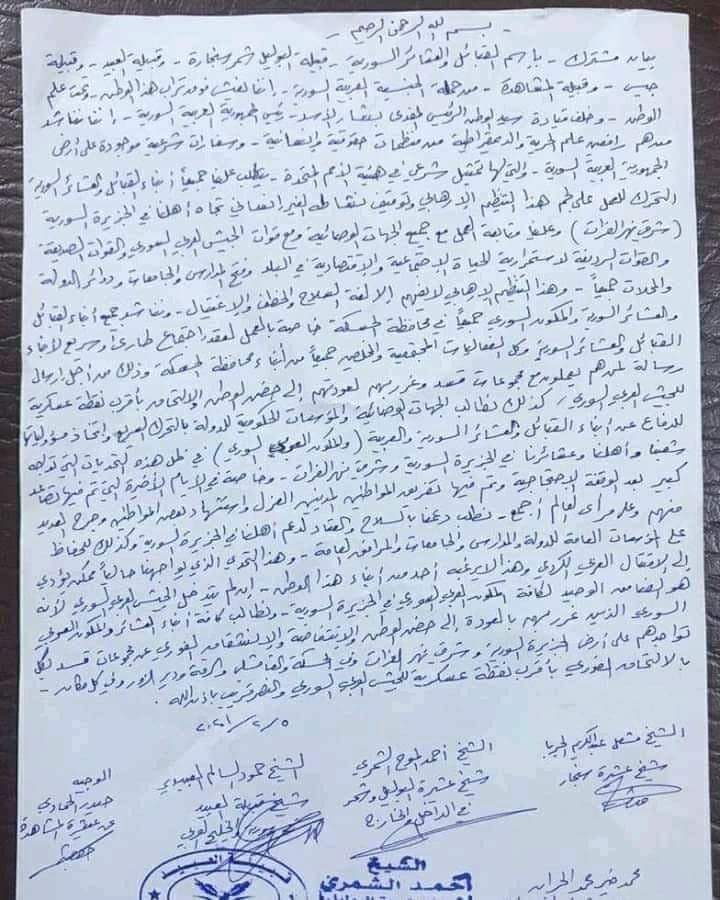 - بسم الله الرحمن الرحيم -
بيان مشترك - باسم القبائل والعشائر السورية - قبيلة البوليل شمر سنجارة - وقبيلة العبيد - وقبيلة
جيس - وقبيلة المشاهدة - من حملة الجنسية العربية السورية - إننا نعيش فوق تراب هذا الوطن - تحت علم
الوطن - وخلف قيادة سيد الوطن الرئيس المفدى بشار الأسد - رئيس الجمهورية العربية السورية - إننا نناشد
من هم رافعين علم الحرية والديمقراطية من منظمات حقوقية وإنسانية - وسفارات شرعية موجودة على أرض
الجمهورية العربية السورية - والتي لها تمثيل شرعي في هيئة الأمم المتحدة - يتطلب علينا جميعاً أبناء القبائل والعشائر السورية
التحرك للعمل على لجم هذا التنظيم الإرهابي وتوقيف نشاطه الغير إنساني تجاه أهلنا في الجزيرة السورية
(شرقي نهر الفرات) وعلينا متابعة العمل مع جميع الجهات الوصائية ومع قوات الجيش العربي السوري والقوات الصديقة
والقوات الرديفة لاستمرارية الحياة الاجتماعية والاقتصادية في البلد وفتح المدارس والجامعات ودوائر الدولة
والمحلات جميعاً - وهذا التنظيم الإرهابي لا يفهم إلا لغة السلاح والخطف والاعتقال - ونناشد جميع أبناء القبائل
والعشائر السورية والمكون السوري جميعاً في محافظة الحسكة خاصة بالعمل لعقد اجتماع طارئ وسريع لأبناء
القبائل والعشائر السورية وكل الفعاليات المجتمعية والمخلصين جميعاً من أبناء محافظة الحسكة وذلك من أجل إرسال
رسالة لمن هم يعملون مع مجموعات قسد وغرر بهم لعودتهم إلى حضن الوطن والالتحاق بأقرب نقطة عسكرية
للجيش العربي السوري / كذلك نطالب الجهات الوصائية والمؤسسات الحكومية للدولة بالتحرك السريع واتخاذ مسؤولياتها
للدفاع عن أبناء القبائل والعشائر السورية والعربية (والمكون السوري) في ظل هذه التحديات التي تواجه
شعبنا وأهلنا وعشائرنا في الجزيرة السورية وشرقي نهر الفرات - وخاصة في الأيام الأخيرة التي تم فيها تصاعد
كبير بعد الوقفة الاحتجاجية وتم فيها تفريق المواطنين المدنيين العزل واستشهاد بعض المواطنين وجرح العديد
منهم وعلى مرأى العالم أجمع - نطلب دعمنا بالسلاح والعتاد لدعم أهلنا في الجزيرة السورية وكذلك للحفاظ
على المؤسسات العامة للدولة والمدارس والجامعات والمرافق العامة - وهذا التحدي الذي يواجهنا حالياً ممكن يؤدي
إلى الاقتتال العربي الكردي وهذا لا يرغبه أحد من أبناء هذا الوطن - إن لم يتدخل الجيش العربي السوري لأنه
هو الضامن الوحيد لكافة المكون العربي السوري في الجزيرة السورية - ونطالب كافة أبناء العشائر والمكون العربي
السوري الذين غرر بهم بالعودة إلى حضن الوطن والانتفاضة والانشقاق الفوري عن مجموعات قسد بكل
تواجدهم على أرض الجزيرة السورية وشرقي نهر الفرات وفي الحسكة والقامشلي والرقة ودير الزور وفي كل مكان -
بالالتحاق الفوري بأقرب نقطة عسكرية للجيش العربي السوري والنصر قريب بإذن الله.
٢٠٢١/٢/٥
الشيخ مشعل عبدالكريم الجربا
شيخ عشيرة سنجار
الشيخ أحمد الشمري
شيخ عشيرة البوليل وشمر
في الداخل والخارج
الشيخ حمود السالم العبيدي
شيخ قبيلة العبيد
سورية والخليج العربي
الوجيه
حيدر الحمادي
عن عشيرة المشاهدة
قبيلة العبيد
الشيخ
أحمد الشمري
محمد خير محمد